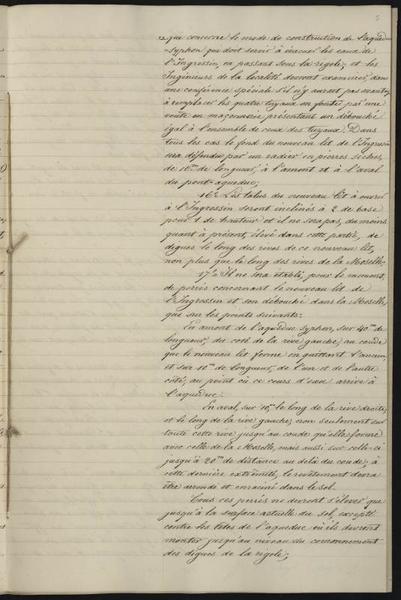 qui concerne le mode de construction de l'aqueduc
syphon qui doit servir à évacuer les eaux de
l'Ingressin, en passant sous la rigole; et les
Ingénieurs de la localité devront examiner, dans
une conférence spéciale s'il n'y aurait pas avantage
à remplacer les quatre tuyaux en fonte par une
voûte en maçonnerie présentant un débouché
égal à l'ensemble de ceux des tuyaux. Dans
tous les cas le fond du nouveau lit de l'Ingressin
sera défendu par un radier en pierres sèches,
de 10m de longueur, à l'amont et à l'aval
du pont-aqueduc;
16° Les talus du nouveau lit à ouvrir
à l'Ingressin seront inclinés à 2 de base
pour 1 de hauteur et il ne sera pas, du moins
quant à présent, élevé dans cette partie, de
digues le long des rives de ce nouveau lit,
non plus que le long des rives de la Moselle;
17° Il ne sera établi, pour le moment,
de perrés concernant le nouveau lit de
l'Ingressin et son débouché dans la Moselle,
que sur les points suivants:
En amont de l'aqueduc syphon, sur 40m de
longueur, du côté de la rive gauche, au coude
que le nouveau lit forme en quittant l'ancien,
et sur 10m de longueur, de l'un et de l'autre
côté, au point où ce cours d'eau arrive à
l'aqueduc.
En aval, sur 10m le long de la rive droite,
et le long de la rive gauche, non seulement sur
toute cette rive jusqu'au coude qu'elle forme
avec celle de la Moselle, mais aussi sur celle-ci
jusqu'à 20m de distance au delà du coude; à
cette dernière extrémité, le revêtement devra
être arrondi et enraciné dans le sol.
Tous ces perrés ne devront s'élever que
jusqu'à la surface actuelle du sol, excepté
contre les têtes de l'aqueduc où ils devront
monter jusqu'au niveau du couronnement
des digues de la rigole;